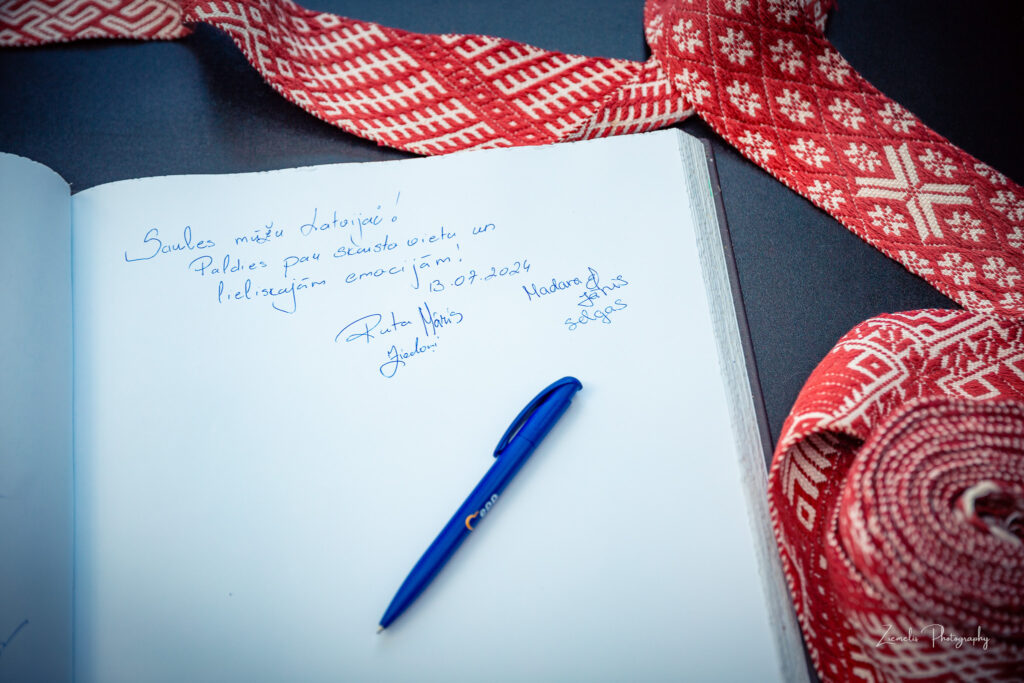 Saules mūžu Latvijai!
Paldies par skaisto vietu un
lieliskajām emocijām!
13.07.2024
Madara &
Jānis
Selgas
Ruta Māris
Ziedoņi
Ziemelis Photography